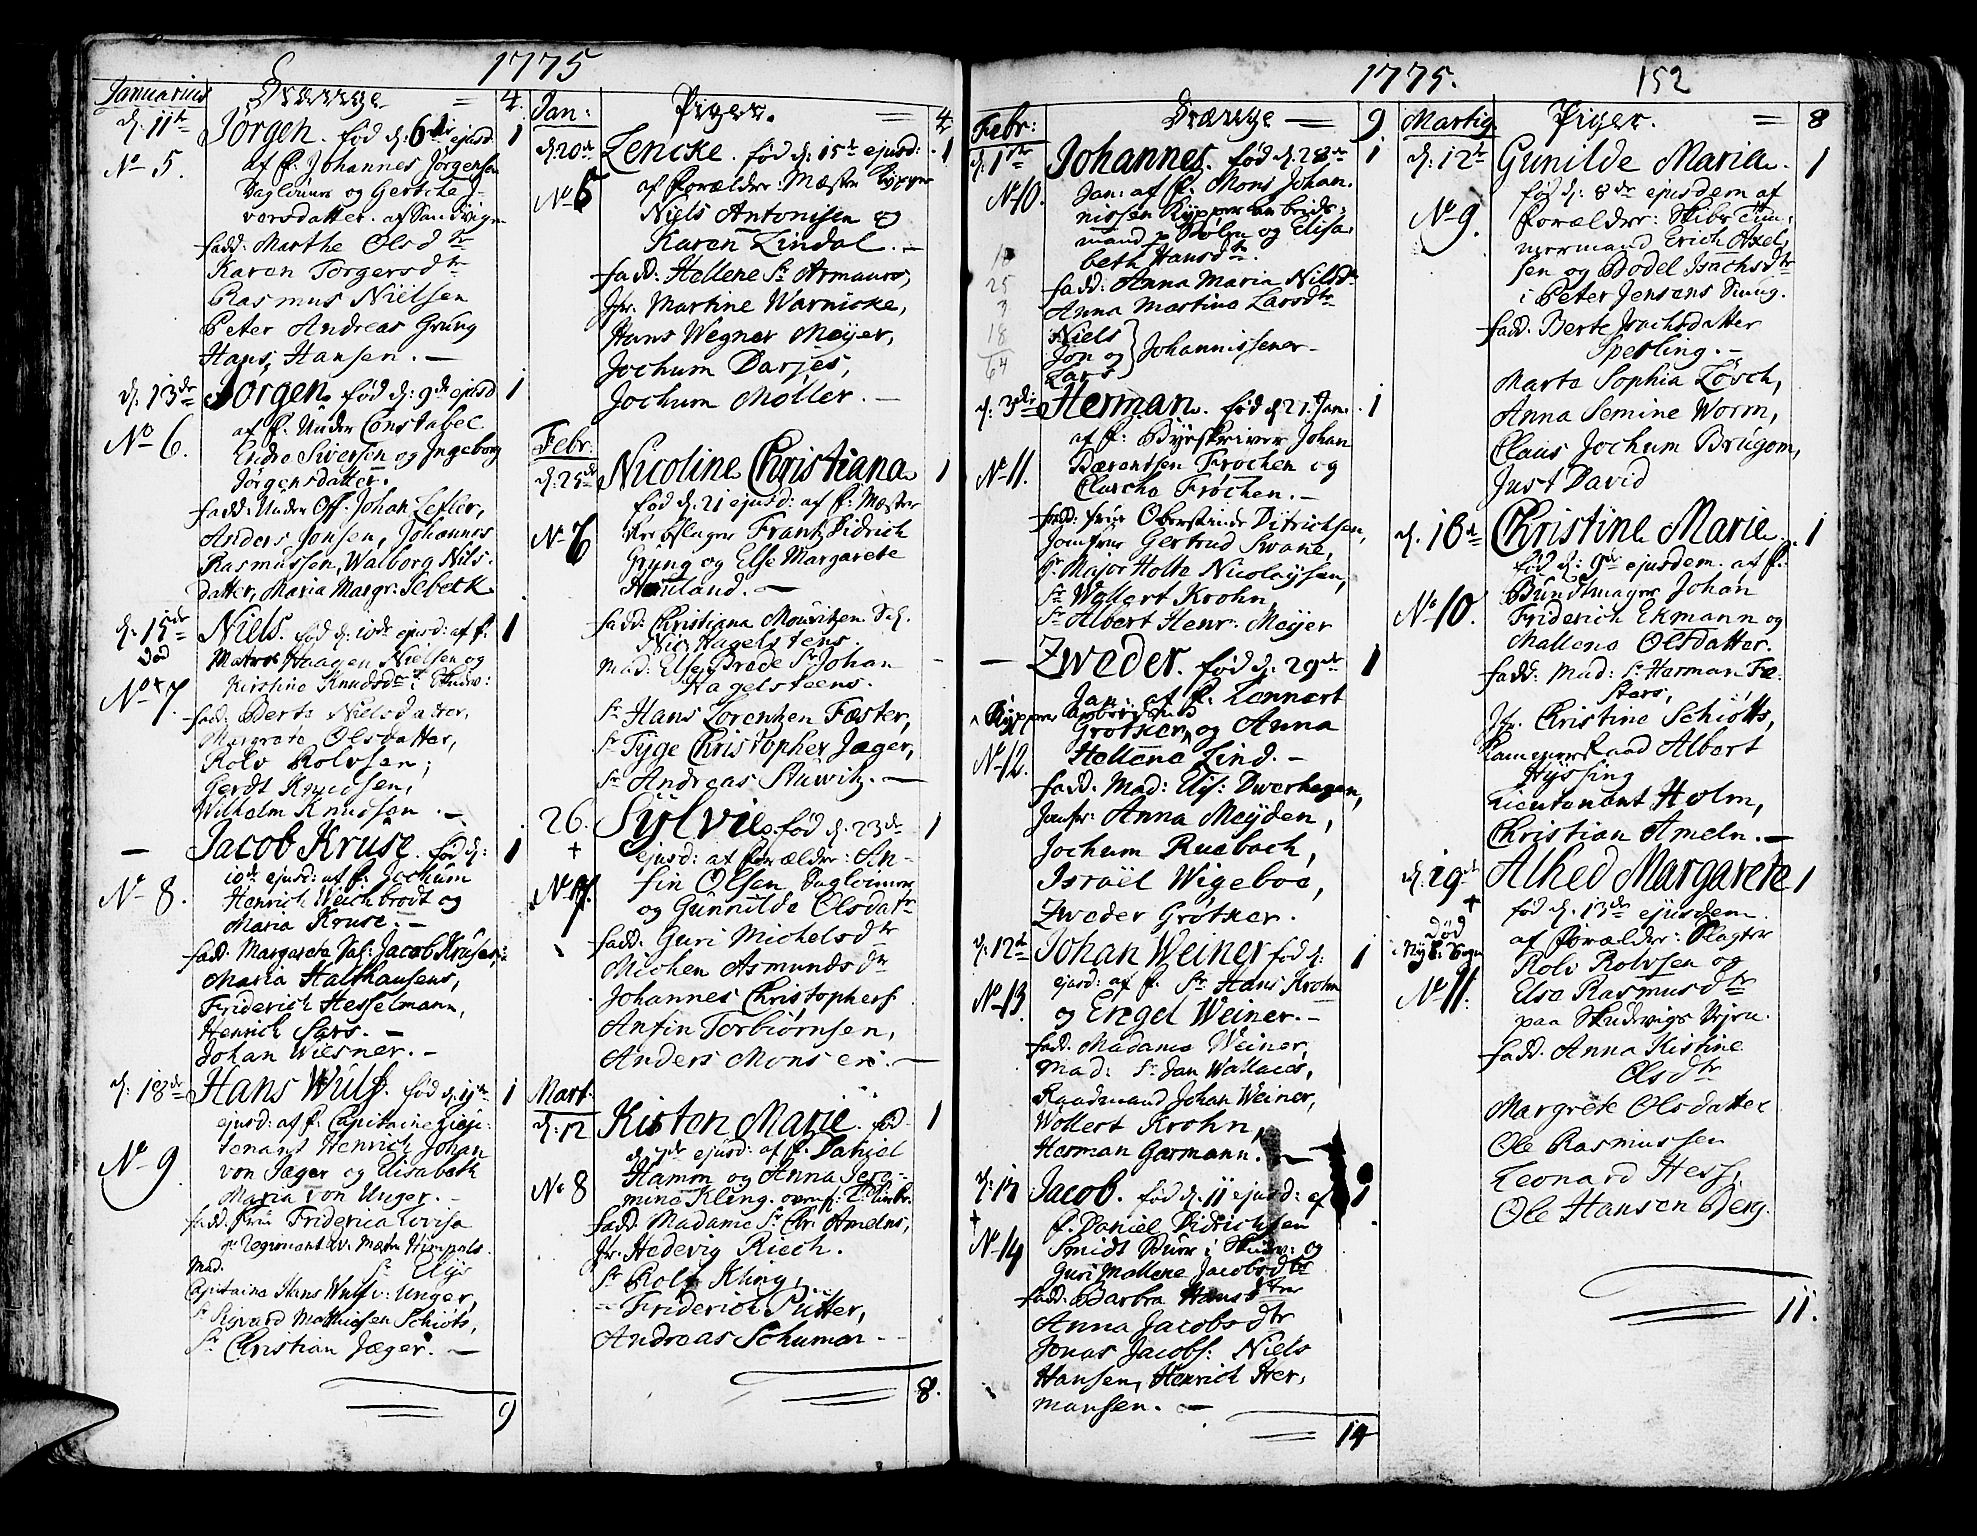 1775
Januarius Drænge = 4.
d. 11te Jörgen. fød d. 6te ejusd 1
No 5. af f. Johannes Jørgensen
Daglönner og Gertche J-
versdatter. af Sandvign
fadd: Marthe Olsdtr
Karen Torgersdtr
Rasmus Nielsen
Peter Andreas Grüng
Hans Hansen. —
d. 13de Jörgen. fød d: 9de ejusd 1
No 6. af f. Under Constabel
Endre Siversen og Ingeborg
Jørgensdatter.
fadd: Under Off. Johan Lefler,
Anders Jonsen, Johannes
Rasmussen, Walborg Nils-
datter, Maria Margr: Sebeck
d. 15de Niels. fød d: 10de ejusd: af f. 1
død Matros Haagen Nielsen og
No 7 Kirstine Knudsdtr i Skudv:
fad: Berte Nielsdatter,
Margrete Olsdatter,
Rolv Rolvsen,
Gerdt Knudsen,
Wilhelm Knudsen. —
— Jacob Kruse. fød d: 1
No 8. 10de ejusd: af f. Jochum
Henrich Weichbrodt og
Maria Kruse. —
fad: Margarete Sal: Jacob Kruses,
Maria Halthausens,
Friderich Hesselmann,
Henrich Sars. —
Johan Wiesner. —
d. 18de Hans Wulf. fød d. 11te 1
ejusd: af f. Capitaine Lieu-
No 9 tenant Henrich Johan
von Jæger og Elisabeth
Maria von Unger. —
fadd. Frue Friderica Lovisa
Mad. Sr Elys
Capitaine Hans Wulf v: Unger,
Sr Sigvard Mathiesen Schiöts,
Sr Christian Jæger. —
9
Jan: Piger. = 4
d. 20de Lencke. fød d: 15de ejusd: 1
No 5 af forælder: Mæster Kypper
Niels Antonisen og
Karen Lindal. —
fadd: Hellene Sr Armauers,
Jfr. Martine Warnicke,
Hans Wegner Meyer,
Jochum Darjes,
Jochum Möller. —
Febr.
d. 25de Nicoline Christiana 1
fød d. 21 ejusd: af f: Mæster
No 6 Rebslager Frantz Didrich
Grÿng og Else Margarete
Houland. —
fadd: Christiana Mouritzen S.
Nic: Hagelstens.
Mad: Else Brode Sr Johan
Hagelsteens.
Sr Hans Lorentzen Fæster,
Sr Tyge Christopher Jæger,
Sr Andreas Stüwitz. —
26. Sÿlvie. fød d. 23de 1
+ ejusd: af forælder: An-
No 7. fin Olsen Daglönner
og Gunnilde Olsdatr
fadd: Guri Michelsdtr
Michen Asmundsdtr
Johannes Christophers.
Anfin Torbiørnsen,
Anders Monsen. —
Mart.
d: 12 Kisten Marie. fød 1
d. 7de ejusd: af f. Daniel
No 8 Hamm og Anna Jere-
mine Kling.
fadd. Madame Sr Chr: Amelns,
Jfr: Hedevig Riech.
Sr Rolf Kling,
— Friderich Pütter,
Andreas Schuman —
8.
1775. 152
Febr: Drænge — 9
d. 1ste Johannes. fød d. 28de 1
No 10. Jan: af f. Mons Johan-
nissen Kypper an brids-
mand p Stølen og Elisa-
beth Hansdtr.
fadd: Anna Maria Nilsdr
Anna Martina Larsdtr
Niels
Jon og } Johannissener —
Lars
25
3
18
64
d: 3die Herman. fød d. 27. Jan. 1
af f: Byeskriver Johan
No 11. Bærentsen Frochen og
Clarcha Frøchen. —
fadd: frue Oberstinde Ditrichsen,
Jomfrue Gertrud Swane,
Hr Major Holte Nicolaysen,
Sr Wollert Krohn,
Sr Albert Henr: Meÿer
— Zweder. fød d. 29de 1
Jan: af f. Lennert
^ Kypper Ambrids mand
Grøtker, og Anna
No 12. Hellene Lind. —
fadd. Mad: Elis: Dwerhagen,
Jomfr: Anna Meÿden,
Jochum Ruebach,
Israël Wigeboe,
Zweder Grötker.
d: 12te Johan Weiner fød d: 1
ejusd: af f. Sr Hans Krohn
No 13. og Engel Weiner. —
fadd: Madame Weiner,
Mad: Sr Dan Wallaces,
Raadmand Johan Weiner,
Wollert Krohn,
Herman Garmann. —
d: 17 Jacob. fød d. 11 ejusd: af 1
+ f. Daniel Didrichsen
No 14 Smidt Buur i Skudv: og
Guri Mallene Jacobsdtr
fadd: Barbra Hansdtr
Anna Jacobsdtr
Jonas Jacobs: Niels
Hansen, Henrich Her-
mansen. —
14
Martig Piger. = 8
d: 12te Gunilde Maria. 1
fød d: 8de ejusdem af
No 9. forælder: Skibs Tim-
mermand Erich Axel-
sen og Bodel Isachsdtr
i Peter Jensens Smug.
fadd: Berte Isachsdatter
Sperling. —
Marte Sophia Lösch,
Anna Semine Worm,
Claus Jochum Brügom,
Just David
d. 16de Christine Marie. 1
fød d: 9de ejusdem. af f.
No 10. Bundtmager Johan
Friderich Ekmann og
Mallene Olsdatter.
fadd: Mad: Sr Herman Fæ-
sters,
Jfr. Christine Schiötts,
Kammer Raad Albert
Hÿssing
Lieutenant Holm,
Christian Ameln. —
d. 19de Alhed Margarete 1
+ fød d. 13de ejusdem.
død af forælder: Slagter
i Nÿk: Sogn Rolv Rolvsen og
No 11. Else Rasmusdtr
paa Skudvigs Veyen.
fadd. Anna Kistine
Olsdtr
Margrete Olsdatter
Ole Rasmussen
Leonard Hess,
Ole Hansen Berg.
11.